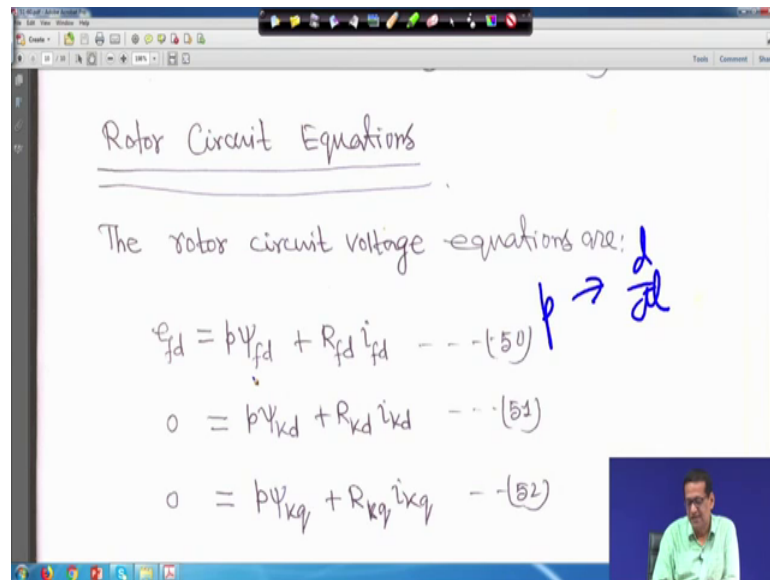 File Edit View Window Help
Create
Tools Comment
Rotor Circuit Equations
The rotor circuit voltage equations are:
p → d/dt
e_fd = pΨ_fd + R_fd i_fd - - - - (50)
0 = pΨ_kd + R_kd i_kd - - - (51)
0 = pΨ_kq + R_kq i_kq - - - (52)